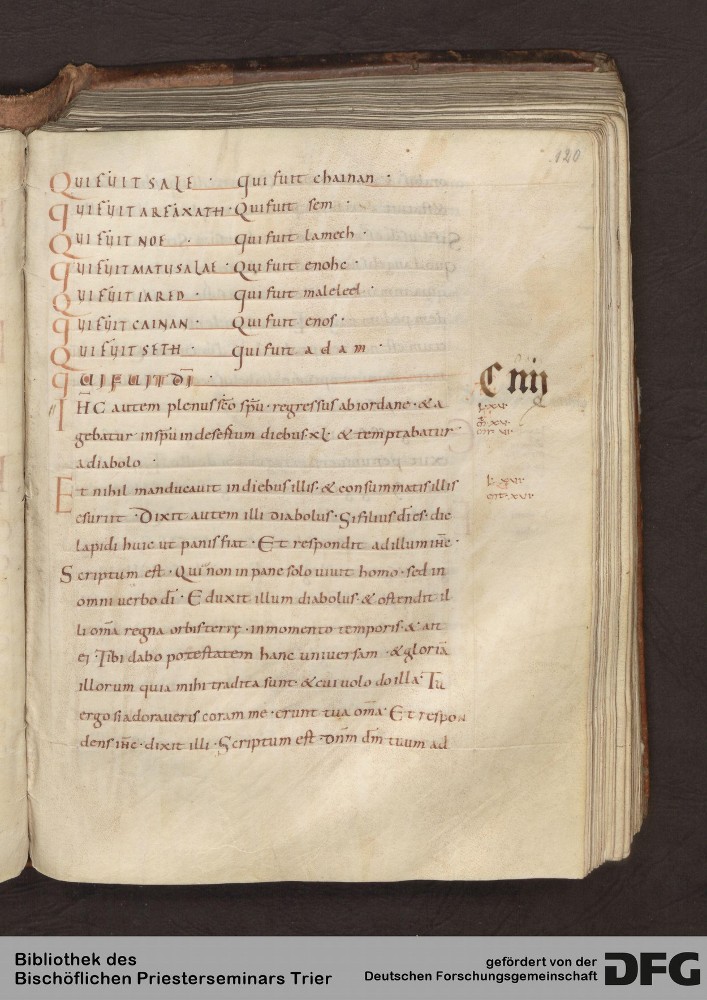 120
QUI FUIT SALE · qui fuit chainan ·
qUI FUIT ARFAXATH · Qui fuit sem ·
QUI FUIT NOE · qui fuit lamech ·
qUI FUIT MATUSALAE · Qui fuit enohc ·
QUI FUIT IARED · qui fuit maleleel ·
qUI FUIT CAINAN · Qui fuit enos ·
QUI FUIT SETH · qui fuit adam ·
qUI FUIT DĪ ·
C iiij
IHC autem plenus sc̄o sp̄u · regressus ab iordane · & a
gebatur in sp̄u in desertum diebus xl · & temptabatur
a diabolo ·
Et nihil manducavit in diebus illis · & consummatis illis
esuriit · Dixit autem illi diabolus · Si filius dī es · dic
lapidi huic ut panis fiat · Et respondit ad illum ih̄c ·
Scriptum est · Qui non in pane solo vivit homo · sed in
omni verbo dī · Eduxit illum diabolus · & ostendit il
li om̄a regna orbis terrę · in momento temporis · & ait
ei · Tibi dabo potestatem hanc universam · & gloriā
illorum quia mihi tradita sunt · & cui volo do illa · Tu
ergo si adoraveris coram me · erunt tua om̄a · Et respon
dens ih̄c · dixit illi · Scriptum est · dn̄m dm̄ tuum ad
Bibliothek des
Bischöflichen Priesterseminars Trier
gefördert von der
Deutschen Forschungsgemeinschaft
DFG